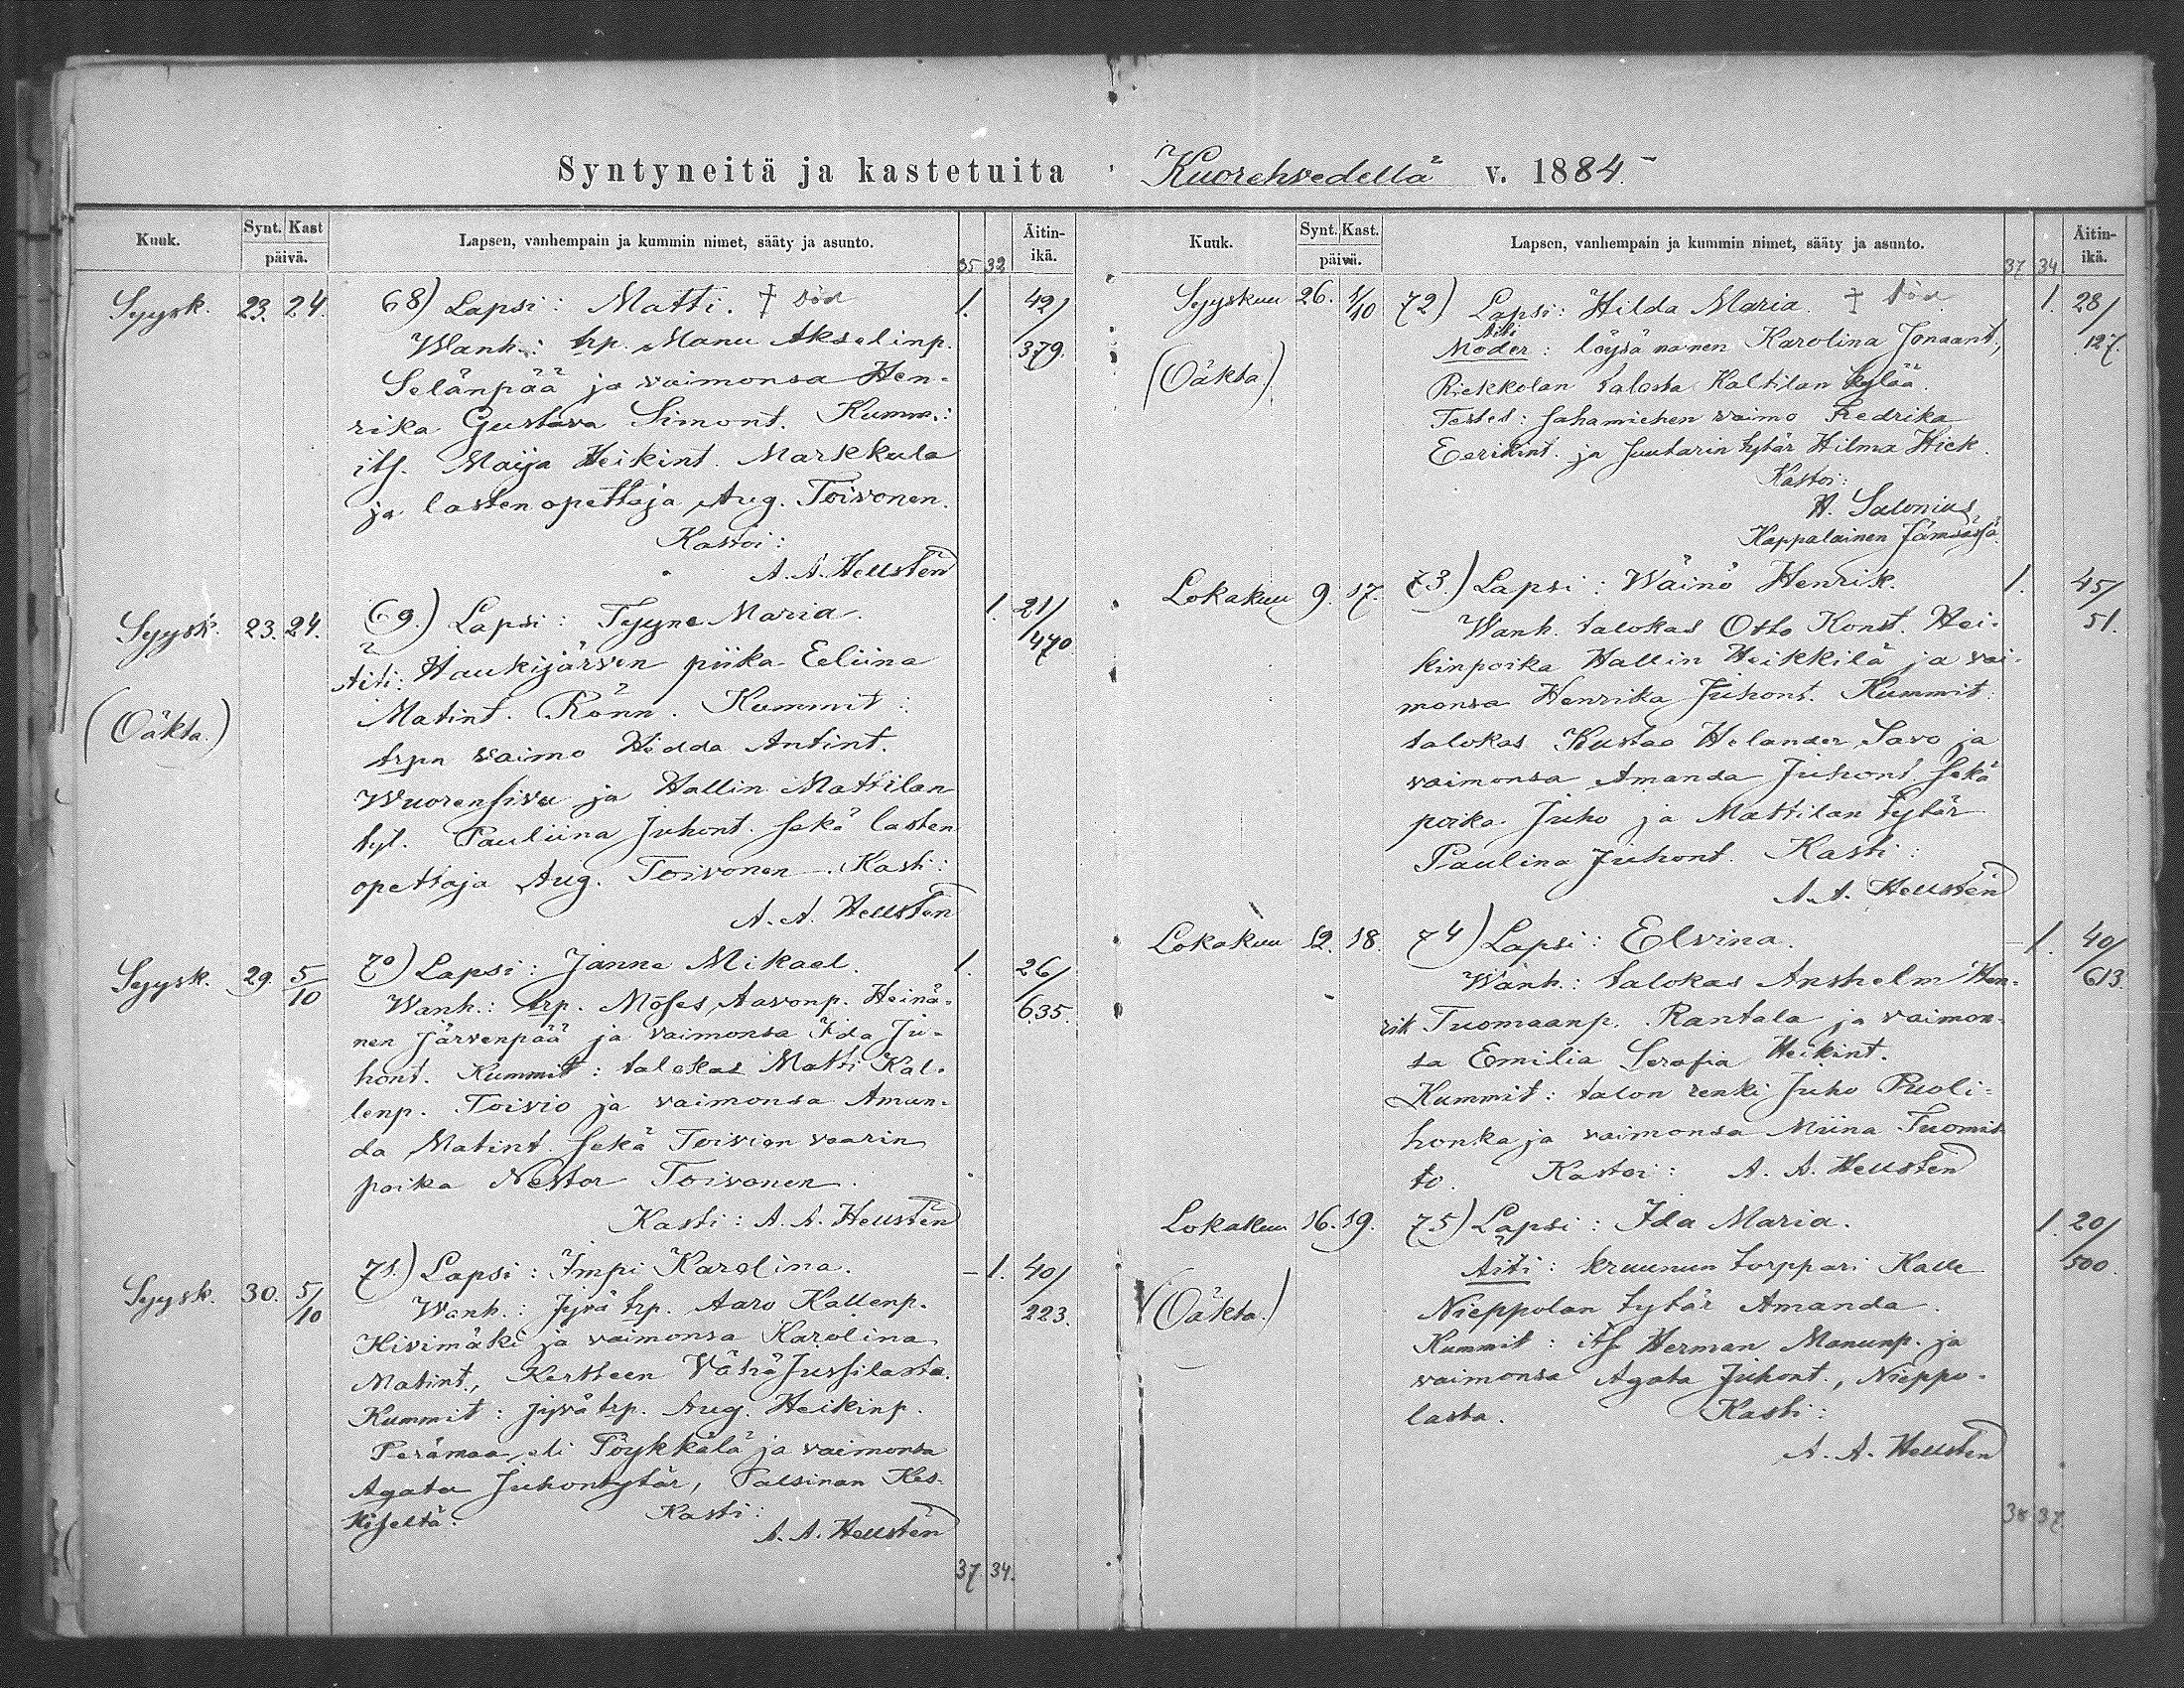 Syntyneitä ja kastetuita Kuorehvedellä v. 1884.
Kuuk. Synt. Kast päivä. Lapsen, vanhempain ja kummin nimet, sääty ja asunto. 35 32 Äitin-ikä.
Syysk. 23. 24. 68) Lapsi: Matti. † död 1. 42/379.
Wanh.: trp. Manu Akselinp.
Selänpää ja vaimonsa Hen-
rika Gustava Simont. Kumm.:
its. Maija Heikint. Markkula
ja lasten opettaja Aug. Toivonen.
Kastoi:
A. A. Hellstén
Syysk. 23. 24. 69.) Lapsi: Tyyne Maria. 1. 21/470
Äiti: Haukijärven piika Eeliina
(Oäkta.) Matint. Rönn. Kummit:
trpn vaimo Hedda Antint.
Wuorensivu ja Hallin Mattilan
tyt. Pauliina Juhont. sekä lasten
opettaja Aug. Toivonen. Kasti:
A. A. Hellstén
Syysk. 29. 5/10 70) Lapsi: Janne Mikael. 1. 26/635.
Wanh.: trp. Moses Aavonp. Heinä-
nen Järvenpää ja vaimonsa Ida Ju-
hont. Kummit: talokas Matti Kal-
lenp. Toivio ja vaimonsa Aman-
da Matint. sekä Toivion vaarin
poika Nestor Toivonen.
Kasti: A. A. Hellstén
Syysk. 30. 5/10 71.) Lapsi: Impi Karolina. - 1. 40/223.
Wanh.: Jyvä trp. Aaro Kallenp.
Kivimäki ja vaimonsa Karolina
Matint., Kertteen Vähä Jussilasta.
Kummit: jyvä trp. Aug. Heikinp.
Perämaa eli Pöykkälä ja vaimonsa
Agata Juhontytär, Palsinan Kes-
kiseltä. Kasti:
A. A. Hellstén
37. 34.
Kuuk. Synt. Kast. päivä. Lapsen, vanhempain ja kummin nimet, sääty ja asunto. 37 34. Äitin-ikä.
Syyskuu 26. 1/10 72) Lapsi: Hilda Maria. † död. 1. 28/127.
Äiti
Moder: löysä nainen Karolina Jonaant.,
(Oäkta.) Riekkolan talosta Kaltilan kylää.
Testes: Sahamiehen vaimo Fredrika
Eerikint. ja Suutarin tytär Hilma Hick.
Kastoi:
A. Salonius
Kappalainen Jämsässä.
Lokakuu 9. 17. 73.) Lapsi: Wäinö Henrik. 1. 45/51.
Wanh. talokas Otto Konst. Hei-
kinpoika Hallin Heikkilä ja vai-
monsa Henrika Juhont. Kummit:
talokas Kustaa Helander Savo ja
vaimonsa Amanda Juhont. sekä
poika Juho ja Mattilan tytär
Paulina Juhont. Kasti:
A. A. Hellstén
Lokakuu 12. 18. 74) Lapsi: Elvina. - 1. 40/613.
Wanh.: talokas Anshelm Hen-
rik Tuomaanp. Rantala ja vaimon-
sa Emilia Serafia Heikint.
Kummit: talon renki Juho Puoli-
honka ja vaimonsa Miina Tuomis-
to. Kastoi: A. A. Hellstén
Lokakuu 16. 19. 75) Lapsi: Ida Maria. 1. 20/500.
Äiti: kruunun torppari Kalle
(Oäkta.) Nieppolan tytär Amanda.
Kummit: its. Herman Manunp. ja
vaimonsa Agata Juhont., Nieppo-
lasta. Kasti:
A. A. Hellstén
38 37.